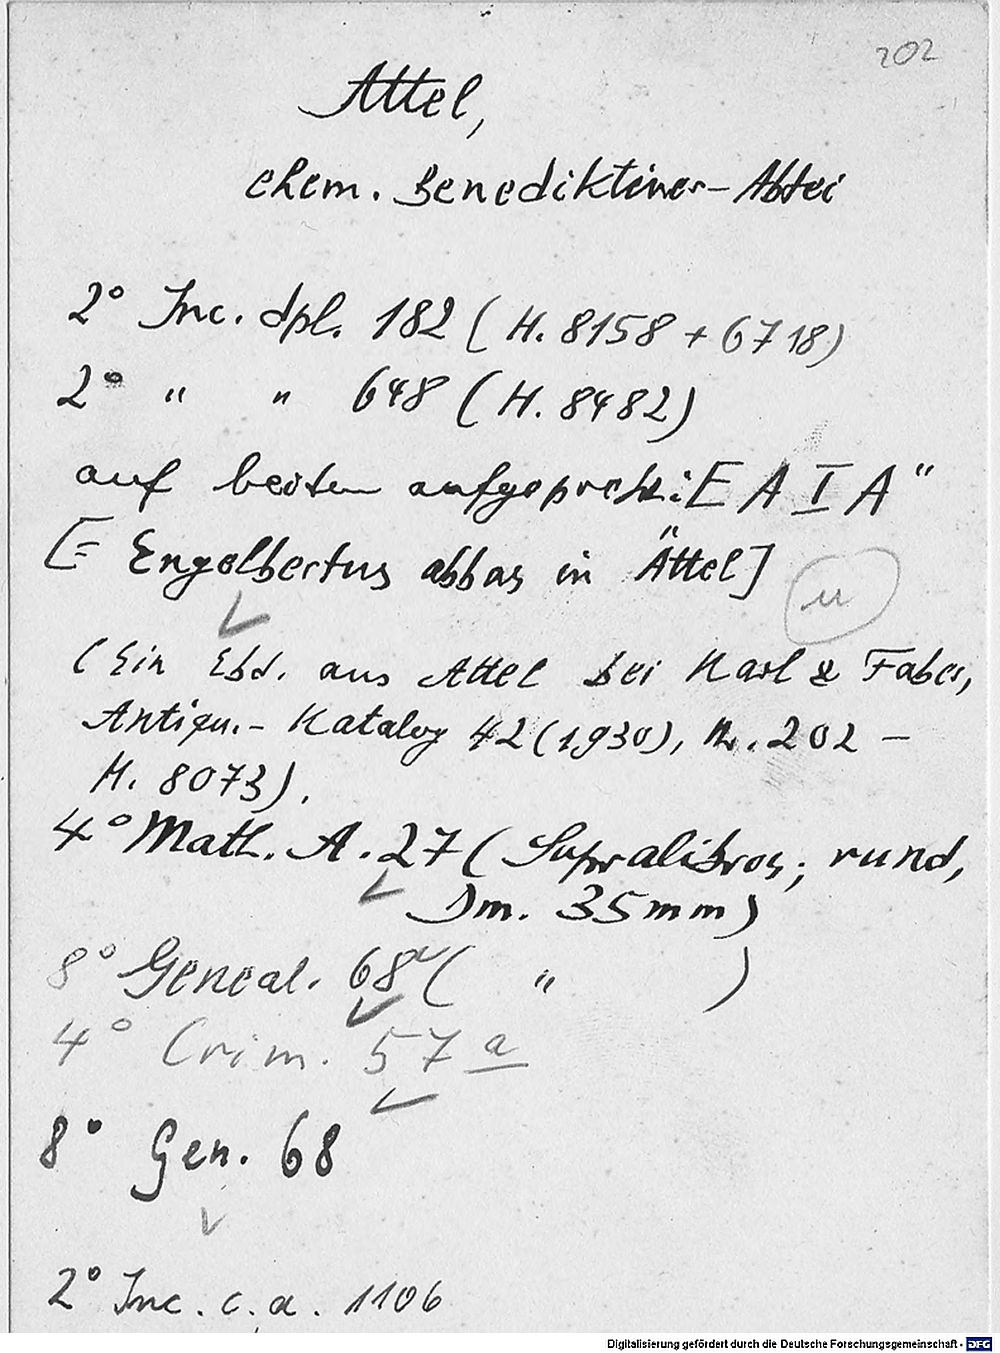 202
Attel,
ehem. Benediktiner-Abtei
2° Inc. dpl. 182 (H. 8158 + 6718)
2° " " 648 (H. 8482)
auf beiden aufgeprekt: E A I A"
[= Engelbertus abbas in Ättel]
(Ein Ebd. aus Attel bei Karl & Faber,
Antiqu.- Katalog 42 (1930), Nr. 202 –
H. 8073).
4° Math. A. 27 (Supralibros; rund,
Dm. 35mm)
8° Geneal. 68 ( " )
4° Crim. 57 a
8° Gen. 68
2° Inc. c. a. 1106
Digitalisierung gefördert durch die Deutsche Forschungsgemeinschaft - DFG